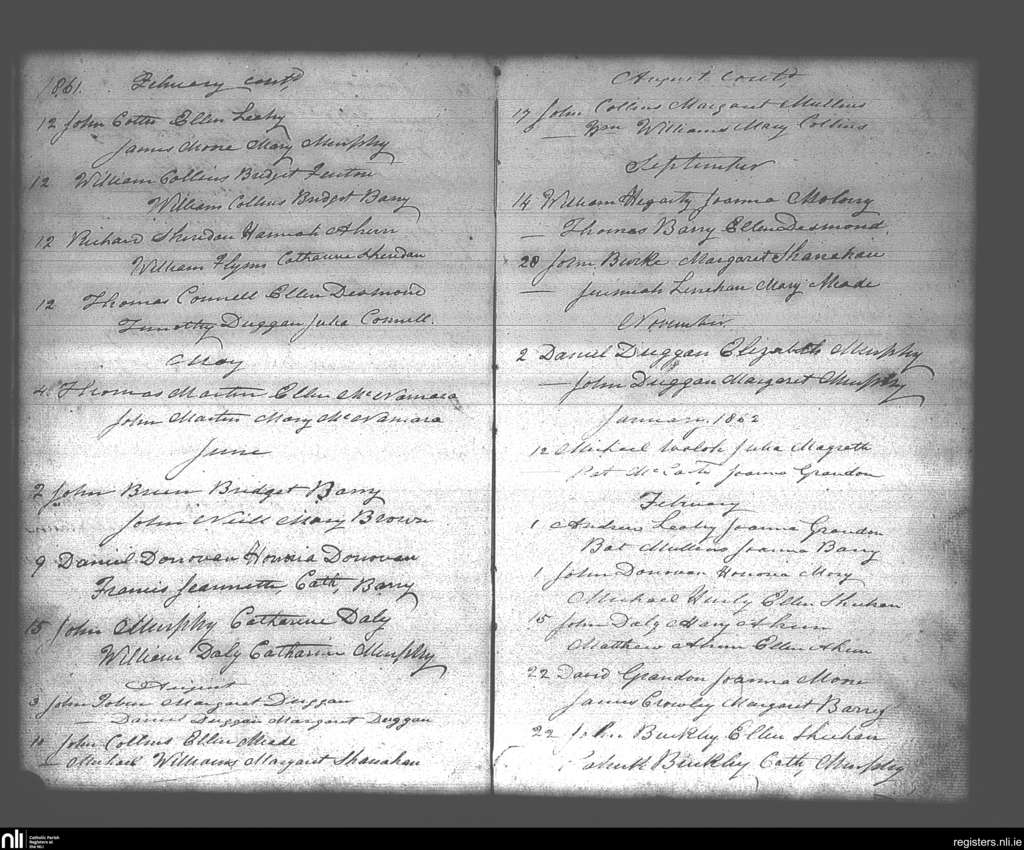 1861. February contd,
12 John Cotter Ellen Leahy
James Moore Mary Murphy
12 William Collins Bridget Fenton
William Collins Bridget Barry
12 Richard Sheridan Hannah Ahern
William Flynn Catharine Sheridan
12 Thomas Connell Ellen Desmond
Timothy Duggan Julia Connell.
May
4 Thomas Martin Ellen McNamara
John Martin Mary McNamara
June
2 John Brien Bridget Barry
John Neill Mary Brown
9 Daniel Donovan Honoria Donovan
Francis Jeannette, Cath, Barry
15 John Murphy Catharine Daly
William Daly Catharine Murphy
August
3 John Tobin Margaret Duggan
— Daniel Duggan Margaret Duggan
10 John Collins Ellen Meade
— Michael Williams Margaret Shanahan
August contd,
17 John Collins Margaret Mullins
— Wm Williams Mary Collins
September
14 William Hegarty Joanna Molony
— Thomas Barry Ellen Desmond
28 John Burke Margaret Shanahan
— Jeremiah Linehan Mary Meade
November
2 Daniel Duggan Elizabeth Murphy
— John Duggan Margaret Murphy
January, 1862
12 Michael Walsh Julia Magrath
Pat Joanna Grandon
February
1 Andrew Leahy Joanna Grandon
Bat Mullins Joanna Barry
1 John Donovan Honoria Mory
Michael Hurly Ellen Sheehan
15 John Daly Mary Ahern
Matthew Ahern Ellen Ahern
22 David Grandon Joanna Moore
James Crowley Margaret Barry
22 John Buckley Ellen Sheehan
Patrick Buckley Cath, Murphy
nli Catholic Parish Registers at the NLI
registers.nli.ie